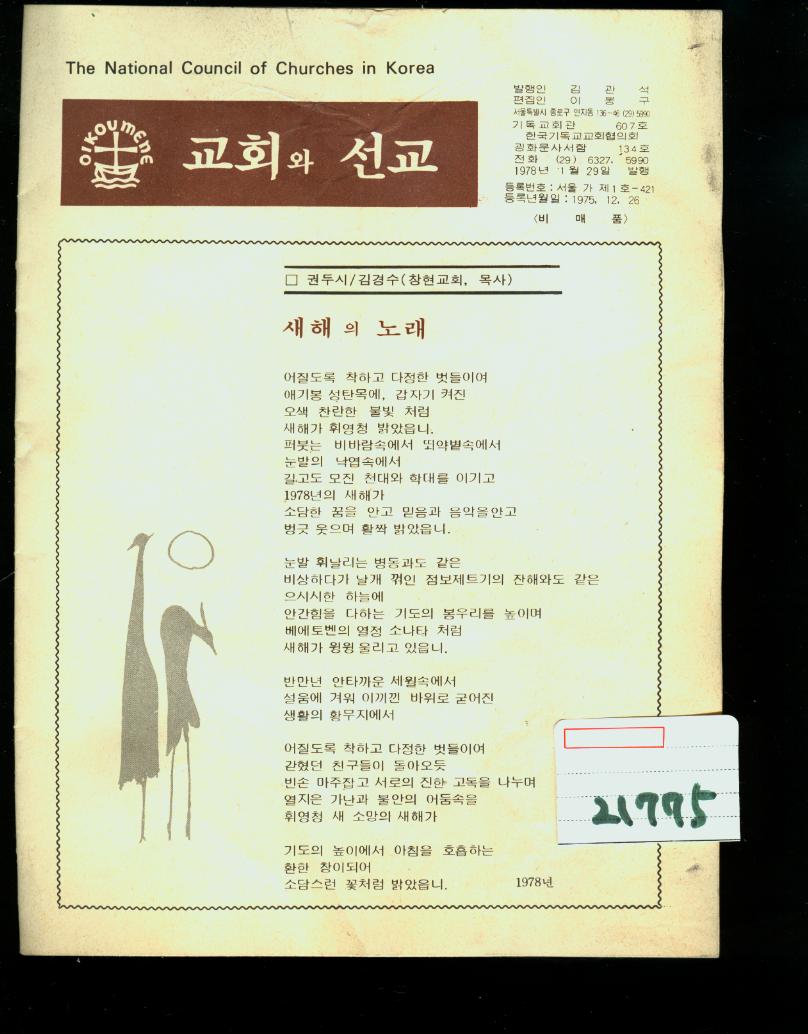 The National Council of Churches in Korea
OIKOUMENE
교회와 선교
발행인 김관석
편집인 이봉구
서울특별시 종로구 연지동 136-46 (29) 5990
기독교회관 607호
한국기독교교회협의회
광화문사서함 134호
전화 (29) 6327, 5990
1978년 1월 29일 발행
등록번호 : 서울 가 제1호-421
등록년월일 : 1975. 12. 26
〈비매품〉
□ 권두시/김경수(창현교회, 목사)
새해의 노래
어질도록 착하고 다정한 벗들이여
애기봉 성탄목에, 갑자기 켜진
오색 찬란한 불빛 처럼
새해가 휘영청 밝았읍니.
퍼붓는 비바람속에서 뙤약볕속에서
눈발의 낙엽속에서
길고도 모진 천대와 학대를 이기고
1978년의 새해가
소담한 꿈을 안고 믿음과 음악을안고
벙긋 웃으며 활짝 밝았읍니.
눈발 휘날리는 병동과도 같은
비상하다가 날개 꺾인 점보제트기의 잔해와도 같은
으시시한 하늘에
안간힘을 다하는 기도의 봉우리를 높이며
베에토벤의 열정 소나타 처럼
새해가 윙윙 울리고 있읍니.
반만년 안타까운 세월속에서
설움에 겨워 이끼낀 바위로 굳어진
생활의 황무지에서
어질도록 착하고 다정한 벗들이여
갇혔던 친구들이 돌아오듯
빈손 마주잡고 서로의 진한 고독을 나누며
열지은 가난과 불안의 어둠속을
휘영청 새 소망의 새해가
기도의 높이에서 아침을 호흡하는
환한 창이되어
소담스런 꽃처럼 밝았읍니.
1978년
21775